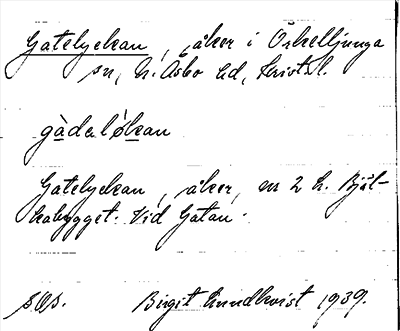 Gatelyckan, åker i Örkelljunga
sn, N. Åsbo hd, Kristst.
gàdalø̀kan
Gatelyckan, åker, en 2 h. Bjäl-
kabygget. Vid Gatan.
Birgit Lundkvist 1939.